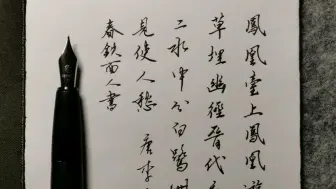 鳳凰臺上鳳凰游
草埋幽徑晉代
二水中分白鷺洲
見使人愁 唐李
春鉄面人書